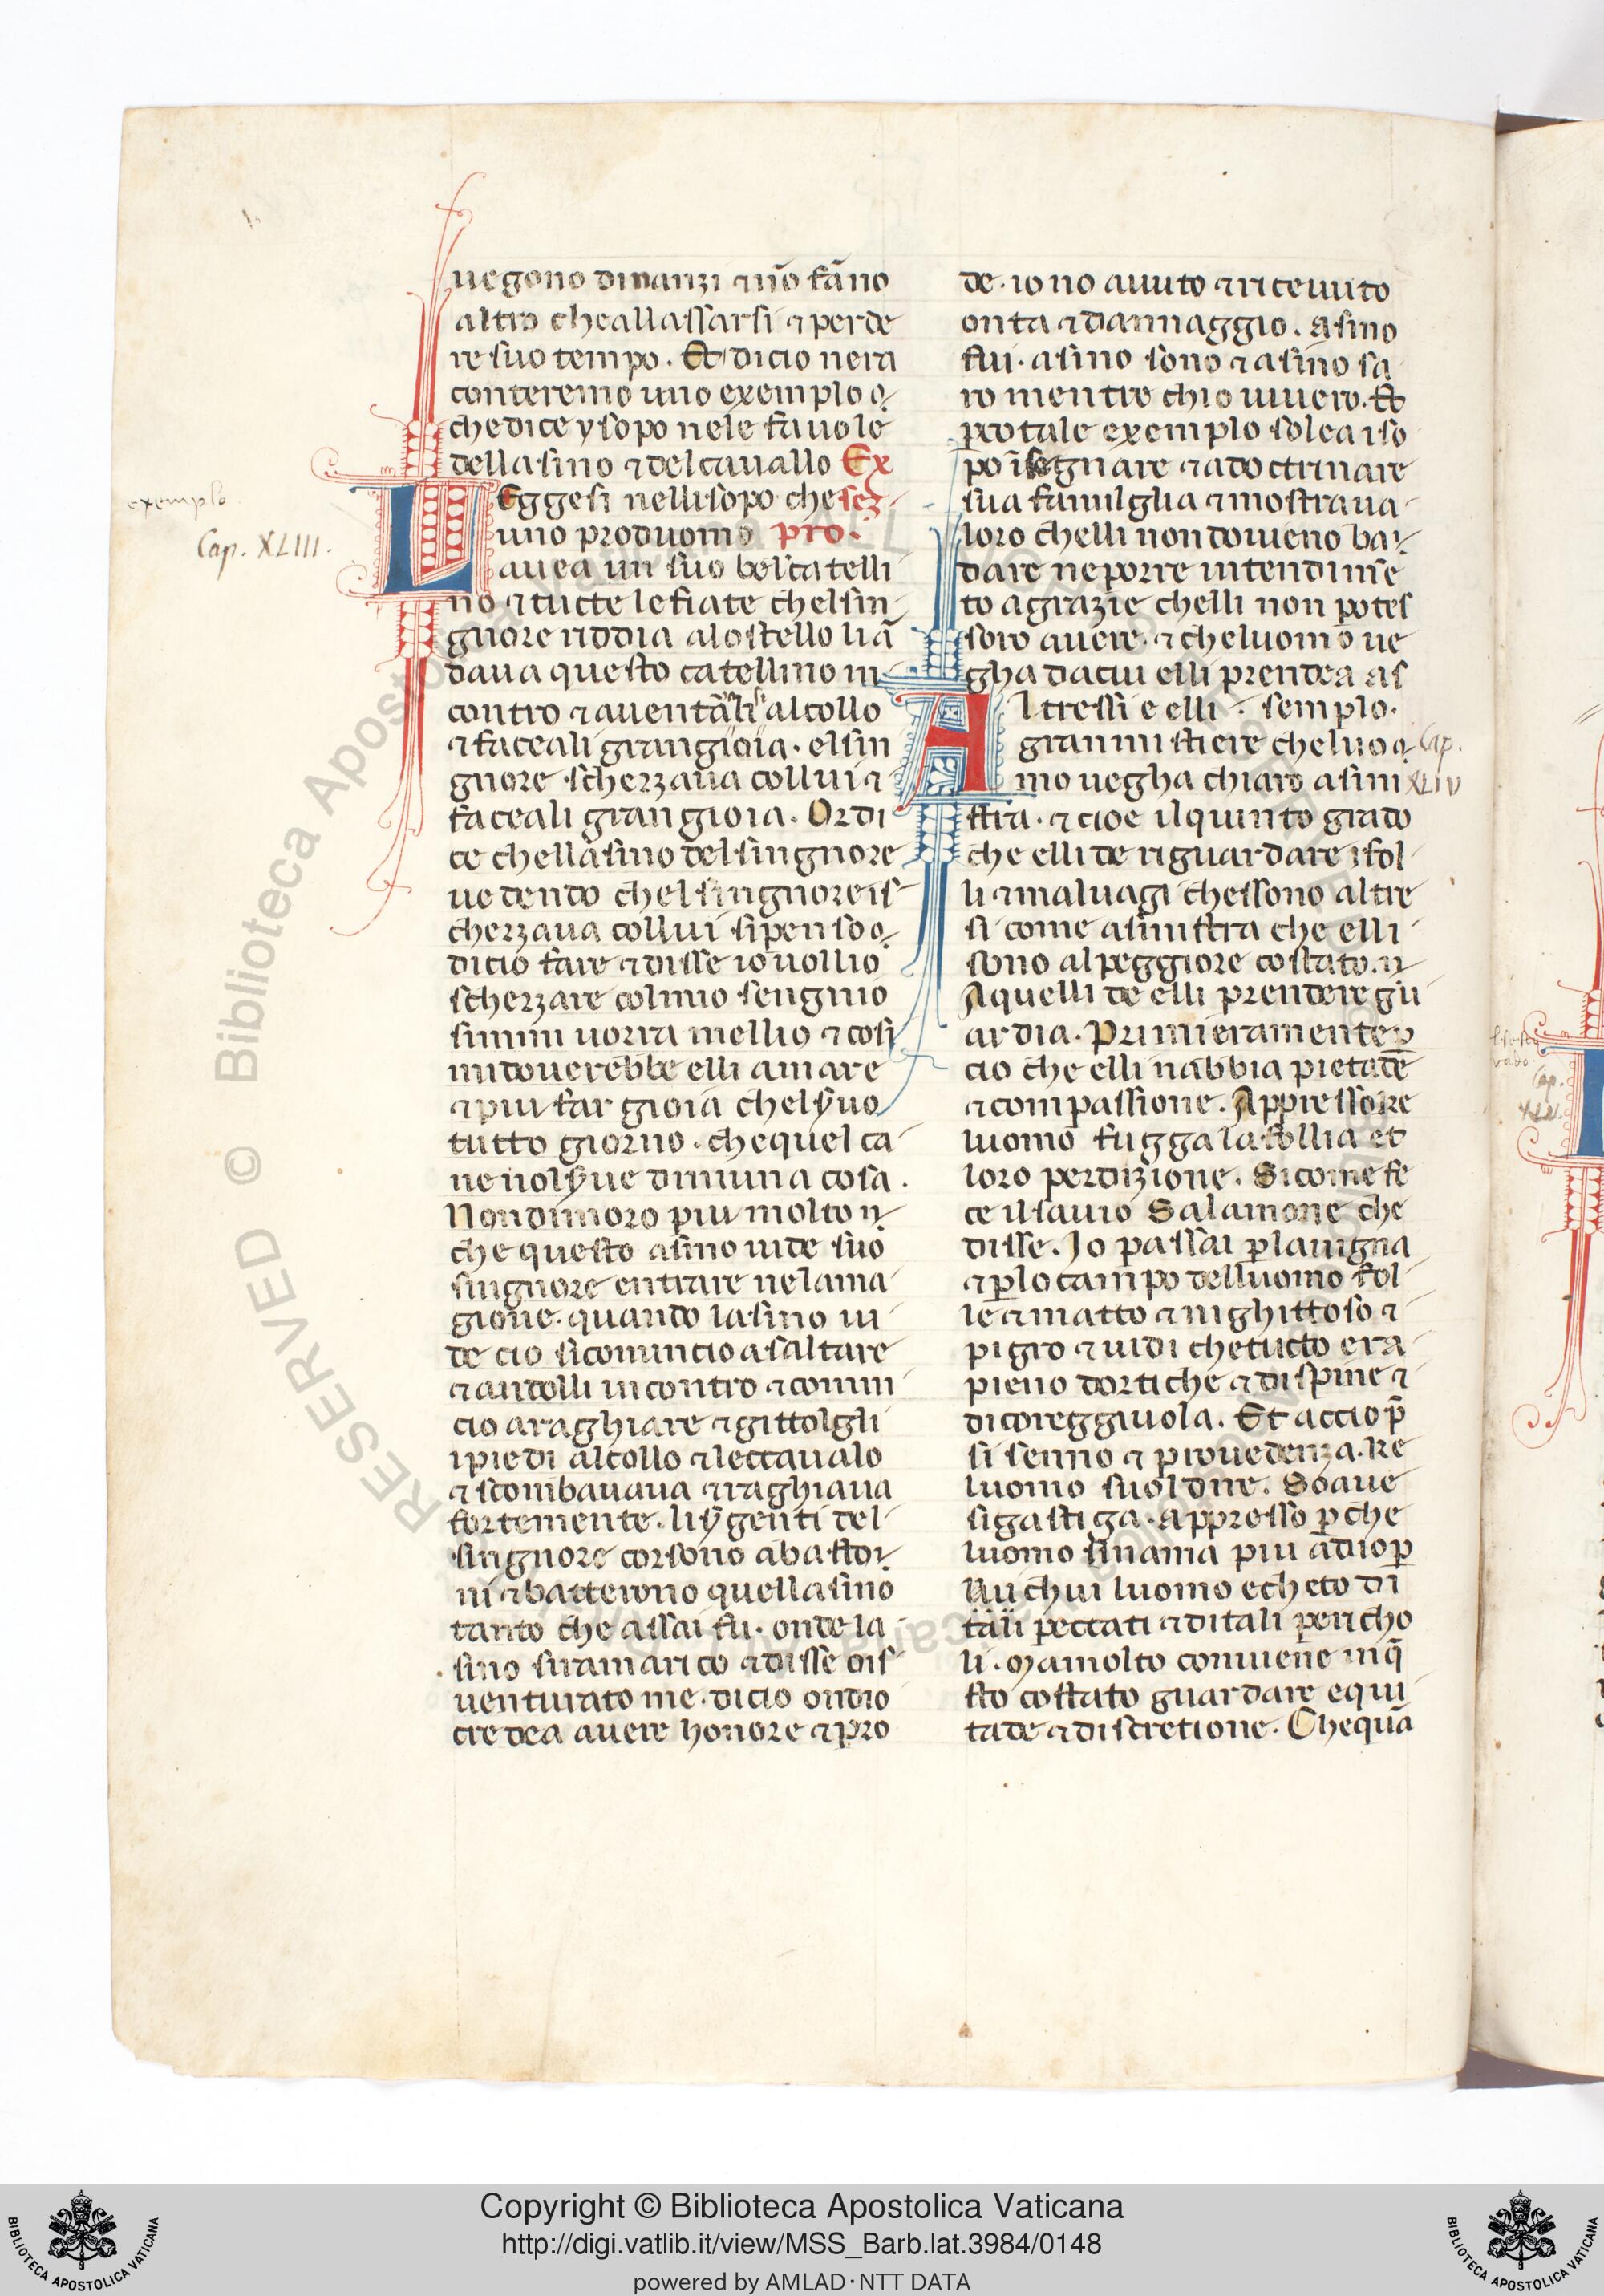 uegono dinanzi ⁊ nō fāno
altro cheallassarsi ⁊ perde
re suo tempo. Et dicio nera
conteremo uno exemplo
che dice ysopo nele fauole
dellasino ⁊ del cauallo Ex
exemplo
LEggesi nellisopo che sez
Cap. XLIII.
uno produomo pro.
auea un suo bol catelli
no ⁊ tucte le fiate chelsin
gnore riddia alostello liā
daua questo catellino in
contro ⁊ auentālisi alcollo
⁊ faceali grangioia. elsin
gnore scherzaua collui ⁊
faceali gran gioia. Or di
ce chellasino del singnore
uedendo chel singnore is
cherzaua collui si penso
dicio fare ⁊ disse io uollio
scherzare colmio sengnio
simmi uorra mellio ⁊ cosi
mi douerebbe elli amare
⁊ piu far gioia chelỹuo
tutto giorno. che quel ca
ne nolỹue di niuna cosa.
Non dimoro piu molto
che questo asino uide suo
singnore entrare nela ma
gione. quando lasino ui
de cio si comincio asaltare
⁊ andolli incontro ⁊ comin
cio araghiare ⁊ gittolgli
ipiedi alcollo ⁊ leccaualo
⁊ scombauaua ⁊ raghiaua
fortemente. liỹgenti del
singnore corsono abasto
ni ⁊ batterono quellasino
tanto che assai fu. onde la
sino siramarico ⁊ disse dis
uenturato me. dicio ondio
credea auere honore ⁊ pro
de. io no auuto ⁊ riceuuto
onta ⁊ dannaggio. asino
fui. asino sono ⁊ asino sa
ro mentre chio uiuero. Et
per tale exemplo solea iso
po īsegnare ⁊ adoctrinare
sua familglia ⁊ mostraua
loro chelli non doueno ba
dare ne porre intendime
to agrazie chelli non potes
soro auere. ⁊ cheluomo ue
gha dacui elli prendea as
Altressi e elli semplo.
gran mistiere cheluo
Cap.
mo uegha chiaro asini
XLIV
stra. ⁊ cioe il quinto grado
che elli de riguardare ifol
li ⁊ maluagi chessono altre
si come asinistra che elli
sono alpeggiore costato.
Aquelli de elli prendere gu
ardia. Primieramente ꝑ
cio che elli nabbia pietade
⁊ compassione. Appresso ke
luomo fugga la follia et
loro perdizione. Sicome fe
ce il sauio Salamone che
disse. Io passai ꝑ lauigna
⁊ ꝑ lo campo delluomo fol
le ⁊ matto ⁊ nighittoso ⁊
pigro ⁊ uidi che tucto era
pieno dortiche ⁊ di spine ⁊
di coreggiuola. Et accio p̄
si senno ⁊ prouedenza. ke
luomo suol dire. Soaue
si gastiga. appresso ꝑ che
luomo sinama piu adio ꝑ
lui chui luomo e cheto di
tali peccati ⁊ di tali pericho
li. Mamolto conuiene in q̄
sto costato guardare equi
tade ⁊ discretione. Che quā
Cap.
© Biblioteca Apostolica Vaticana ALL RIGHTS RESERVED
Copyright © Biblioteca Apostolica Vaticana
http://digi.vatlib.it/view/MSS_Barb.lat.3984/0148
powered by AMLAD·NTT DATA
BIBLIOTECA APOSTOLICA VATICANA
BIBLIOTECA APOSTOLICA VATICANA